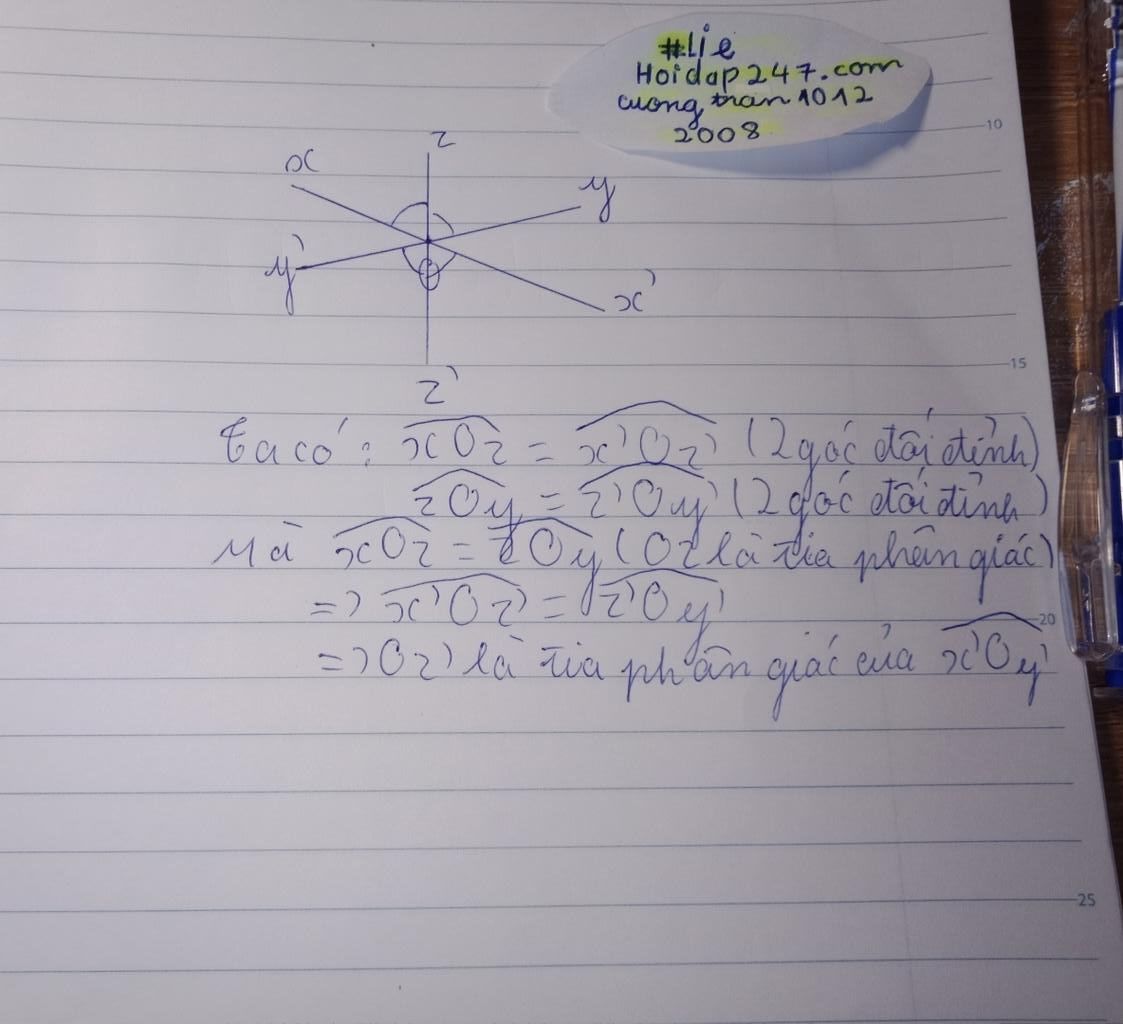 #Lie
Hoidap247.com
cuong tran 1012
2008
10
z
x
y
y'
O
x'
15
z'
Ta có: xOz = x'Oz' (2 góc đối đỉnh)
zOy = z'Oy' (2 góc đối đỉnh)
Mà xOz = zOy (Oz là tia phân giác)
=> x'Oz' = z'Oy'
20
=> Oz' là tia phân giác của x'Oy'
25